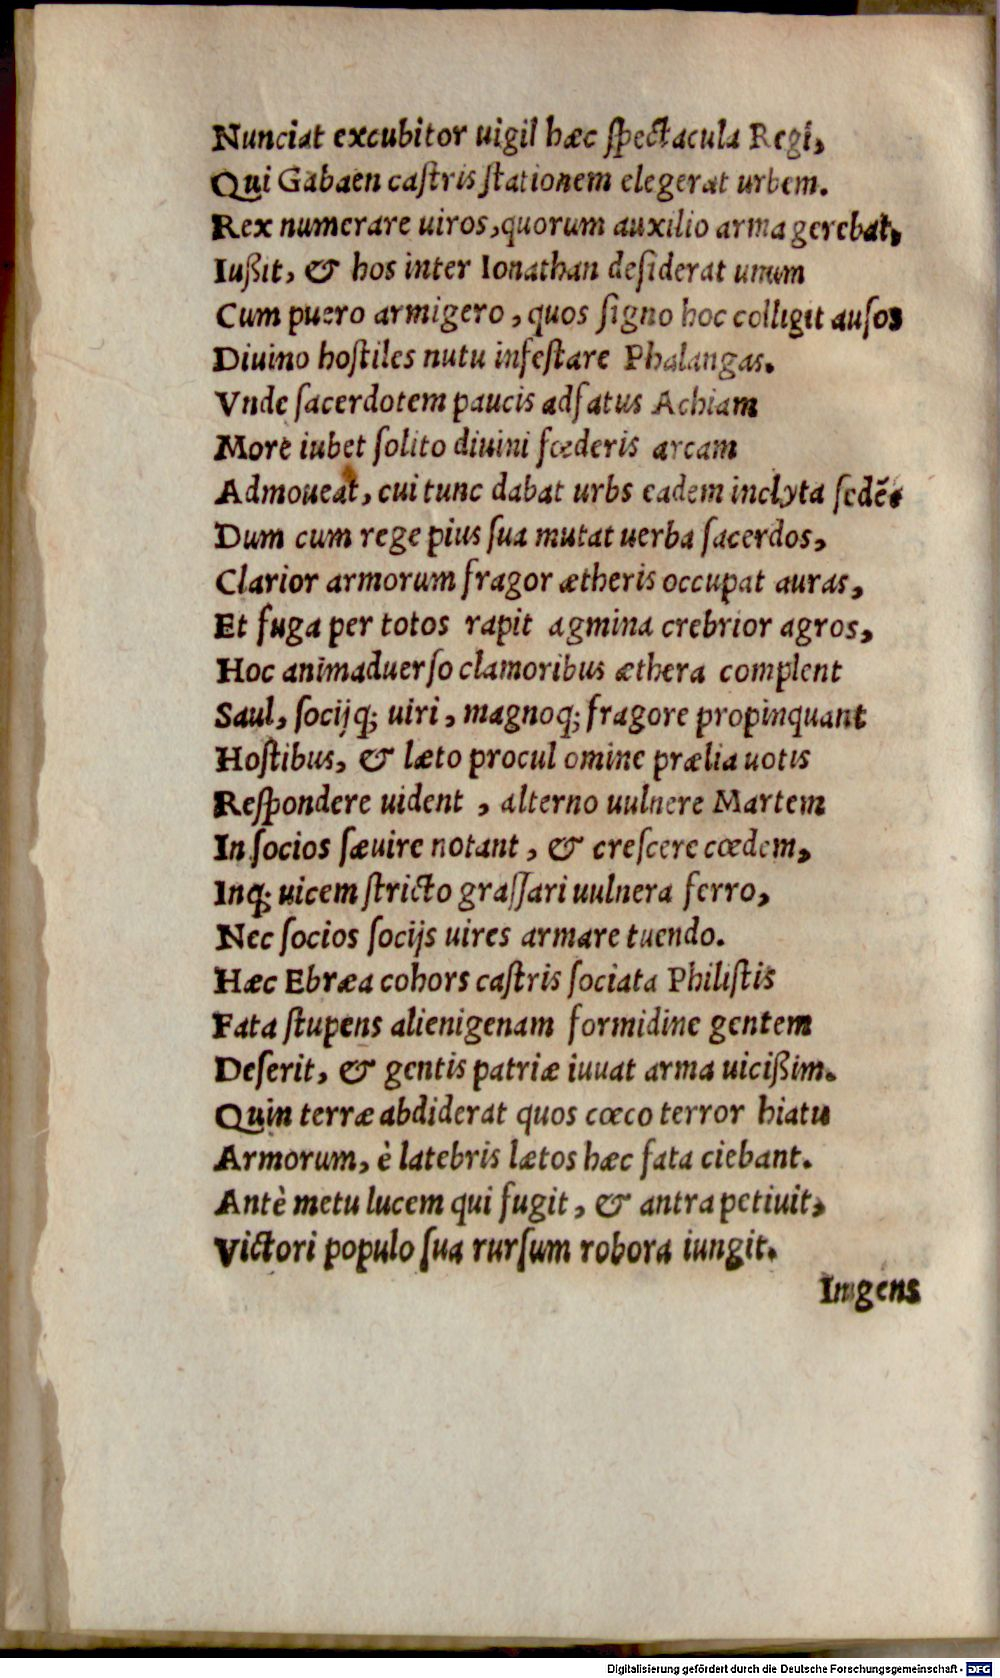 Nunciat excubitor uigil hæc ſpectacula Regi,
Qui Gabaen caſtris ſtationem elegerat urbem.
Rex numerare uiros, quorum auxilio arma gerebat,
Iußit, & hos inter Ionathan deſiderat unum
Cum puero armigero, quos ſigno hoc colligit auſos
Diuino hoſtiles nutu infeſtare Phalangas.
Vnde ſacerdotem paucis adfatus Achiam
More iubet ſolito diuini fœderis arcam
Admoueat, cui tunc dabat urbs eadem inclyta ſedẽ.
Dum cum rege pius ſua mutat uerba ſacerdos,
Clarior armorum fragor ætheris occupat auras,
Et fuga per totos rapit agmina crebrior agros,
Hoc animaduerſo clamoribus æthera complent
Saul, ſocijq; uiri, magnoq; fragore propinquant
Hoſtibus, & læto procul omine prælia uotis
Reſpondere uident, alterno uulnere Martem
In ſocios ſæuire notant, & creſcere cœdem,
Inq; uicem ſtricto graſſari uulnera ferro,
Nec ſocios ſocijs uires armare tuendo.
Hæc Ebræa cohors caſtris ſociata Philiſtis
Fata ſtupens alienigenam formidine gentem
Deſerit, & gentis patriæ iuuat arma uicißim.
Quin terræ abdiderat quos cœco terror hiatu
Armorum, è latebris lætos hæc fata ciebant.
Antè metu lucem qui fugit, & antra petiuit,
Victori populo ſua rurſum robora iungit.
Imgens
Digitalisierung gefördert durch die Deutsche Forschungsgemeinschaft - DFG